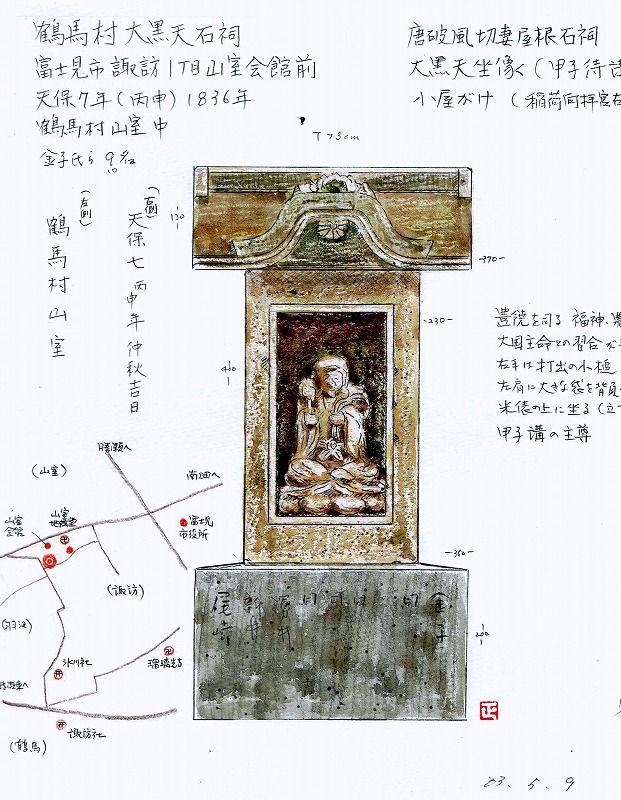 鶴馬村 大黒天石祠
富士見市 諏訪1丁目山室会館前
天保7年(丙申)1836年
鶴馬村山室中
金子氏ら9名
唐破風切妻屋根石祠
大黒天坐像く(甲子待
小屋がけ(稲荷同拝宮
T 73cm
(右側)
天保七丙申年仲秋吉日
(左側)
鶴馬村山室
130
370
230
410
360
200
豊饒を司る 福神、
大国主命との習合が
右手は打出の小槌
左肩に大きな袋を背負
米俵の上に坐る(立
甲子講の主尊
勝瀬へ
南畑へ
(山室)
山室会館
山室地蔵堂
富士見市役所
(諏訪)
(羽沢)
氷川社
瑠璃光寺
諏訪社
(鶴馬)
金子
同
同
同
同
横井
新井
尾崎
正
03. 5. 9